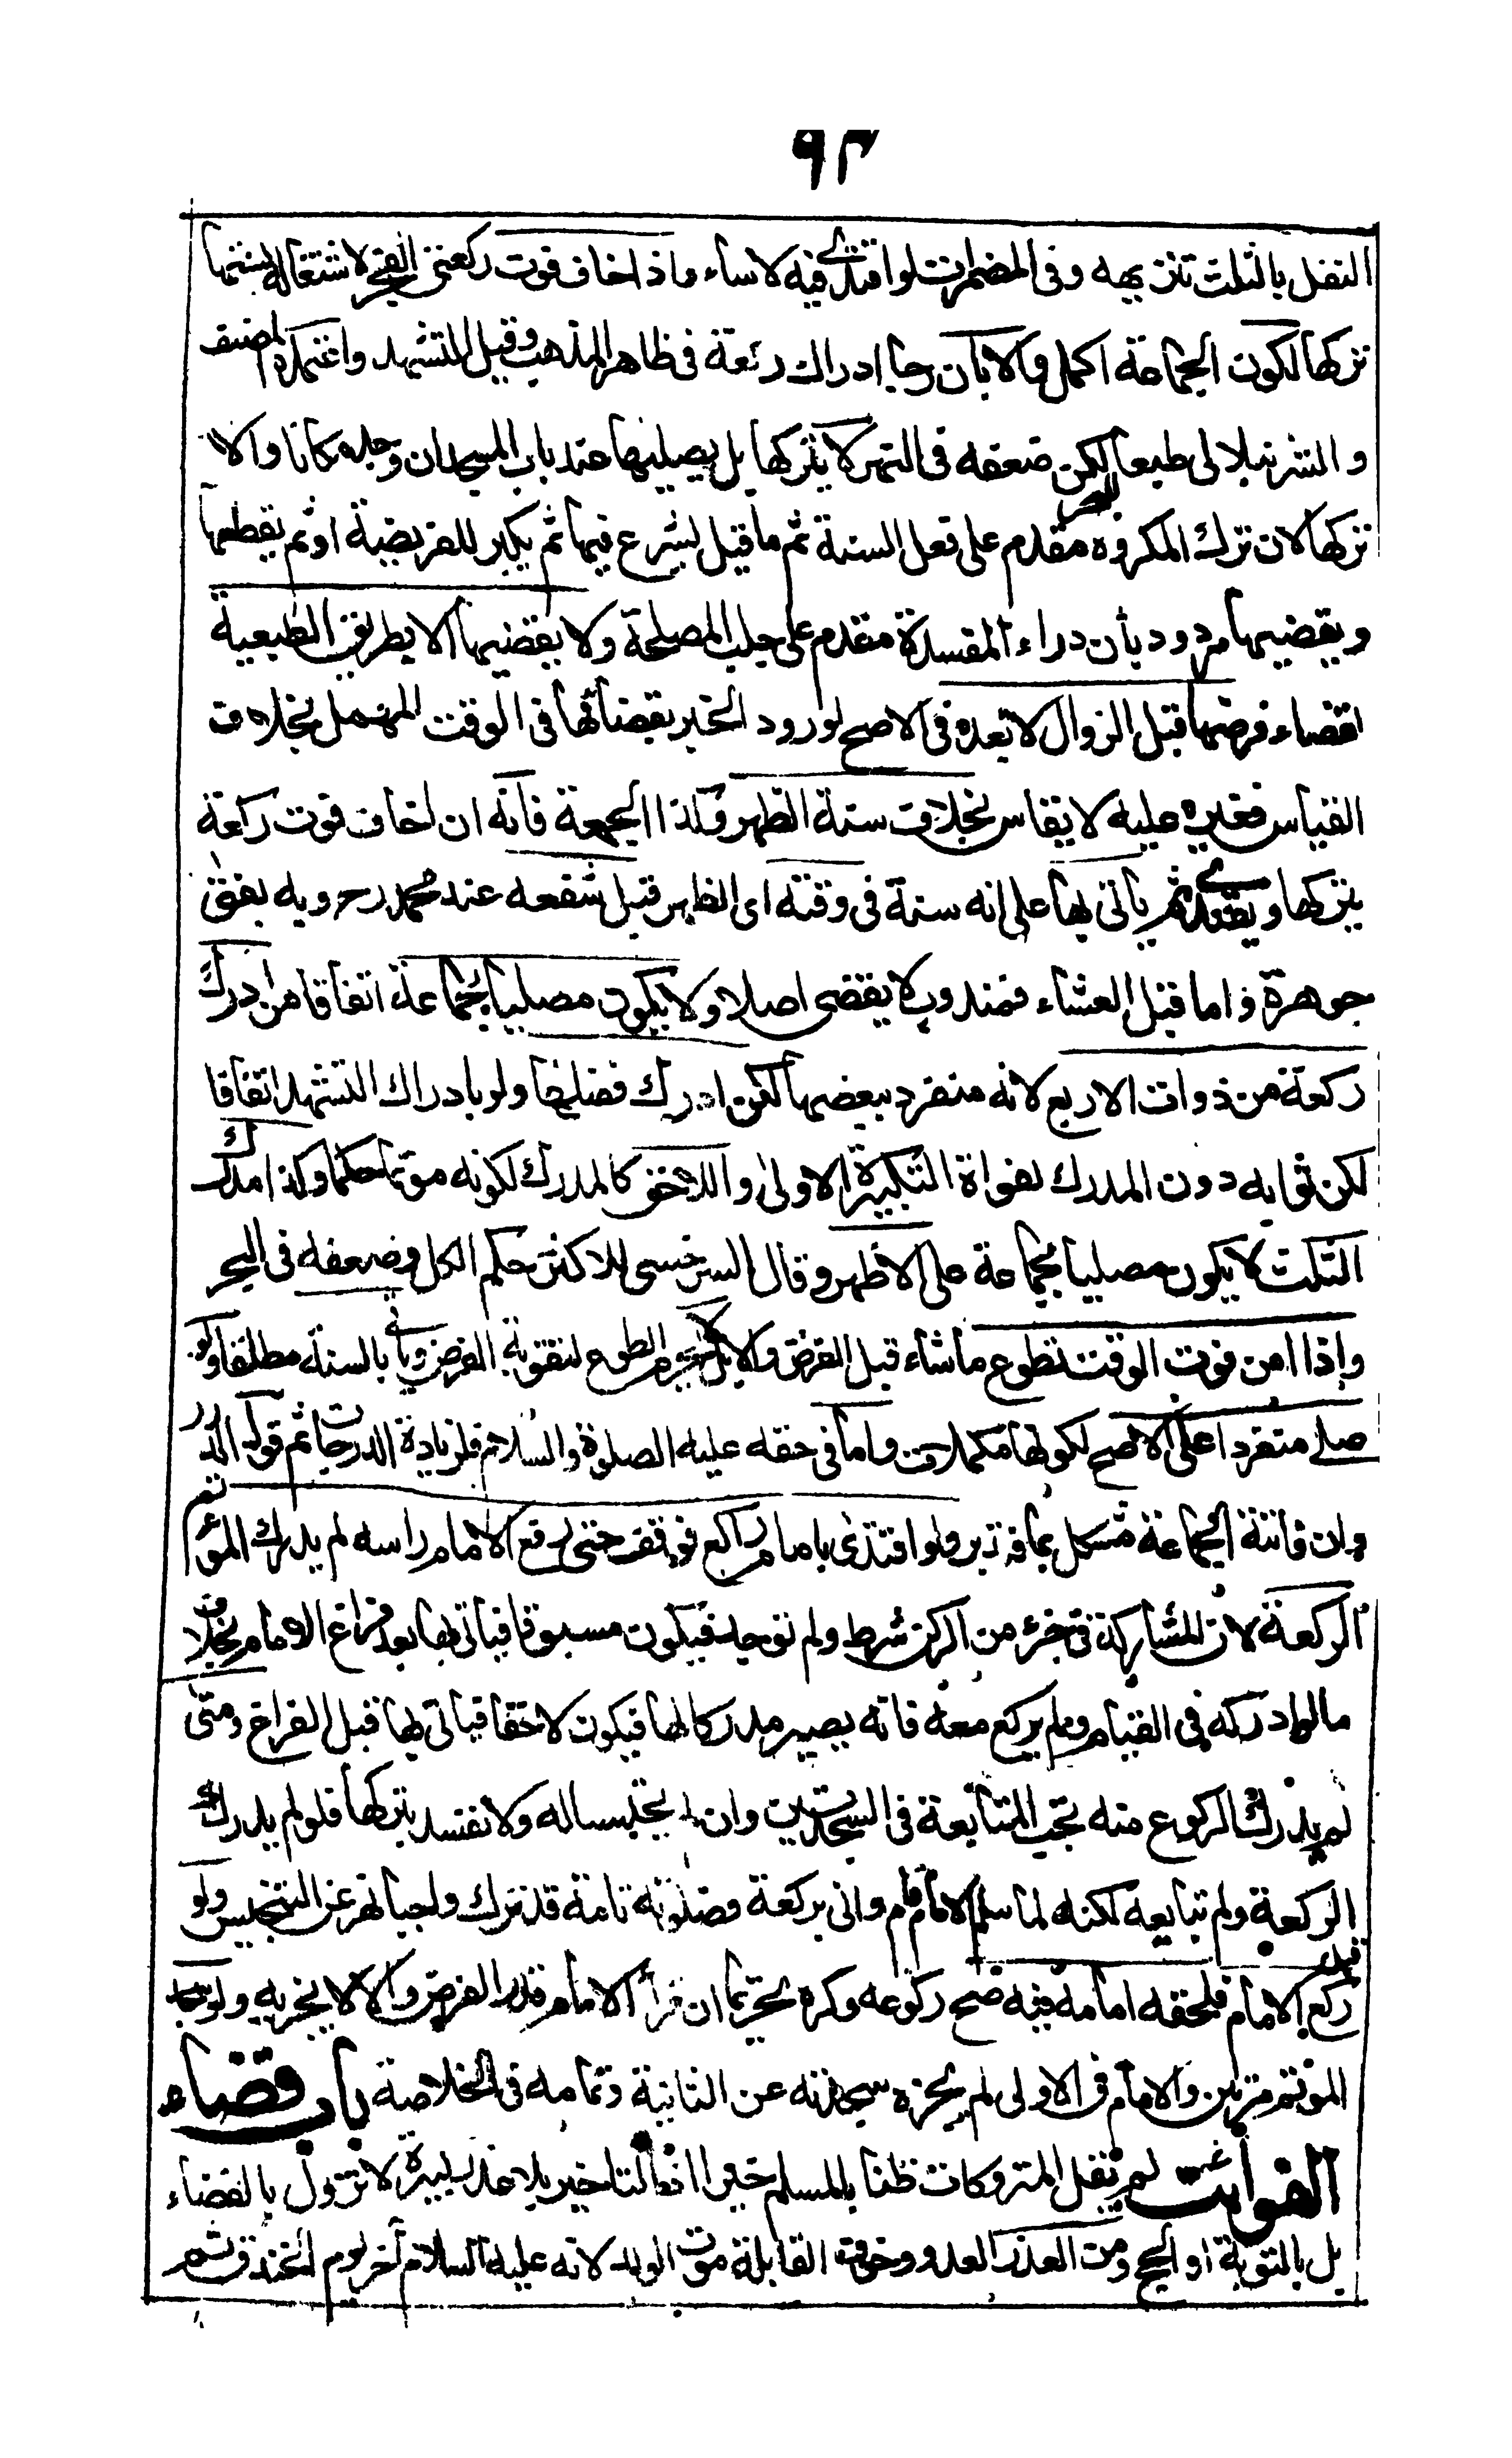 ٩٣
النفل بالثلث تنزيهه وفى المضمرات لو اقتدى فيه لاساء واذا خاف فوت ركعتى الفجر لاشتغاله بسنتها
تركها لكون الجماعة اكمل والا بان رجا ادراك ركعة فى ظاهر المذهب وقيل التشهد واعتمده المصنف
والشرنبلالى طبعا للبحر لكن ضعفه فى النهر لا يتركها بل يصليها عند باب المسجد ان وجد مكانا والا
تركها لان ترك المكروه مقدم على فعل السنة ثم ما قيل يشرع فيها ثم يكبر للفريضة او ثم يقطعها
ويقضيها مردود بأن دراء المفسدة مقدم على جلب المصلحة ولا يقضيها الا بطريق الطبعية
لقضاء فرضها قبل الزوال لا بعده فى الاصح لورود الخبر بقضائها فى الوقت المهمل بخلاف
القياس فغيره عليه لا يقاس بخلاف سنة الظهر وكذا الجمعة فانه ان خاف فوت ركعة
يتركها ويقتدى ثم يأتى بها على انه سنة فى وقته اى الظهر قبل شفعه عند محمد رح وبه يفتى
جوهرة واما قبل العشاء فمندوب لا يقضى اصلا ولا يكون مصليا بجماعة اتفاقا من ادرك
ركعة من ذوات الاربع لانه منفرد ببعضها لكن ادرك فضلها ولو بادراك التشهد اتفاقا
لكن ثوابه دون المدرك لفواة التكبيرة الاولى واللاحق كالمدرك لكونه مؤتما حكما وكذا مدرك
الثلث لا يكون مصليا بجماعة على الاظهر وقال السرخسى للاكثر حكم الكل وضعفه فى البحر
واذا امن فوت الوقت تطوع ما شاء قبل الفرض والا لا بل يحرم التطوع لتفويته الفرض ويأتى بالسنة مطلقا ولو
صلى منفردا على الاصح لكونها مكملات واما فى حقه عليه الصلوة والسلام فلزيادة الدرجات ثم قول الدرر
وان فاتته الجماعة مشكل بما مر فتدبر ولو اقتدى بامام راكع فوقف حتى رفع الامام راسه لم يدرك المؤتم
الركعة لان المشاركة فى جزء من الركن شرط ولم توجد فيكون مسبوقا فيأتى بها بعد فراغ الامام بخلاف
ما لو ادركه فى القيام ولم يركع معه فانه يصير مدركا لها فيكون لاحقا فيأتى بها قبل الفراغ ومتى
لم يدرك الركوع معه تجب المتابعة فى السجدتين وان لم تحسبا له ولا تفسد بتركها فلو لم يدرك
الركعة ولم يتابعه لكنه لما سلم الامام قام واتى بركعة فصلوته تامة قد ترك واجبا نهر عن التجنيس ولو
ركع قبل الامام فلحقه امامه فيه صح ركوعه وكره تحريما ان قرأ الامام قدر الفرض والا لا يجزيه ولو سجد
المؤتم مرتين والامام فى الاولى لم يجزه سجدته عن الثانية وتمامه فى الخلاصة باب قضاء
الفوائت لم يقل المتروكات ظنا بالمسلم خيرا اذ التاخير بلا عذر كبيرة لا تزول بالقضاء
بل بالتوبة او الحج ومن العذر العدو وخوف القابلة موت الولد لانه عليه السلام أخر يوم الخندق ثم